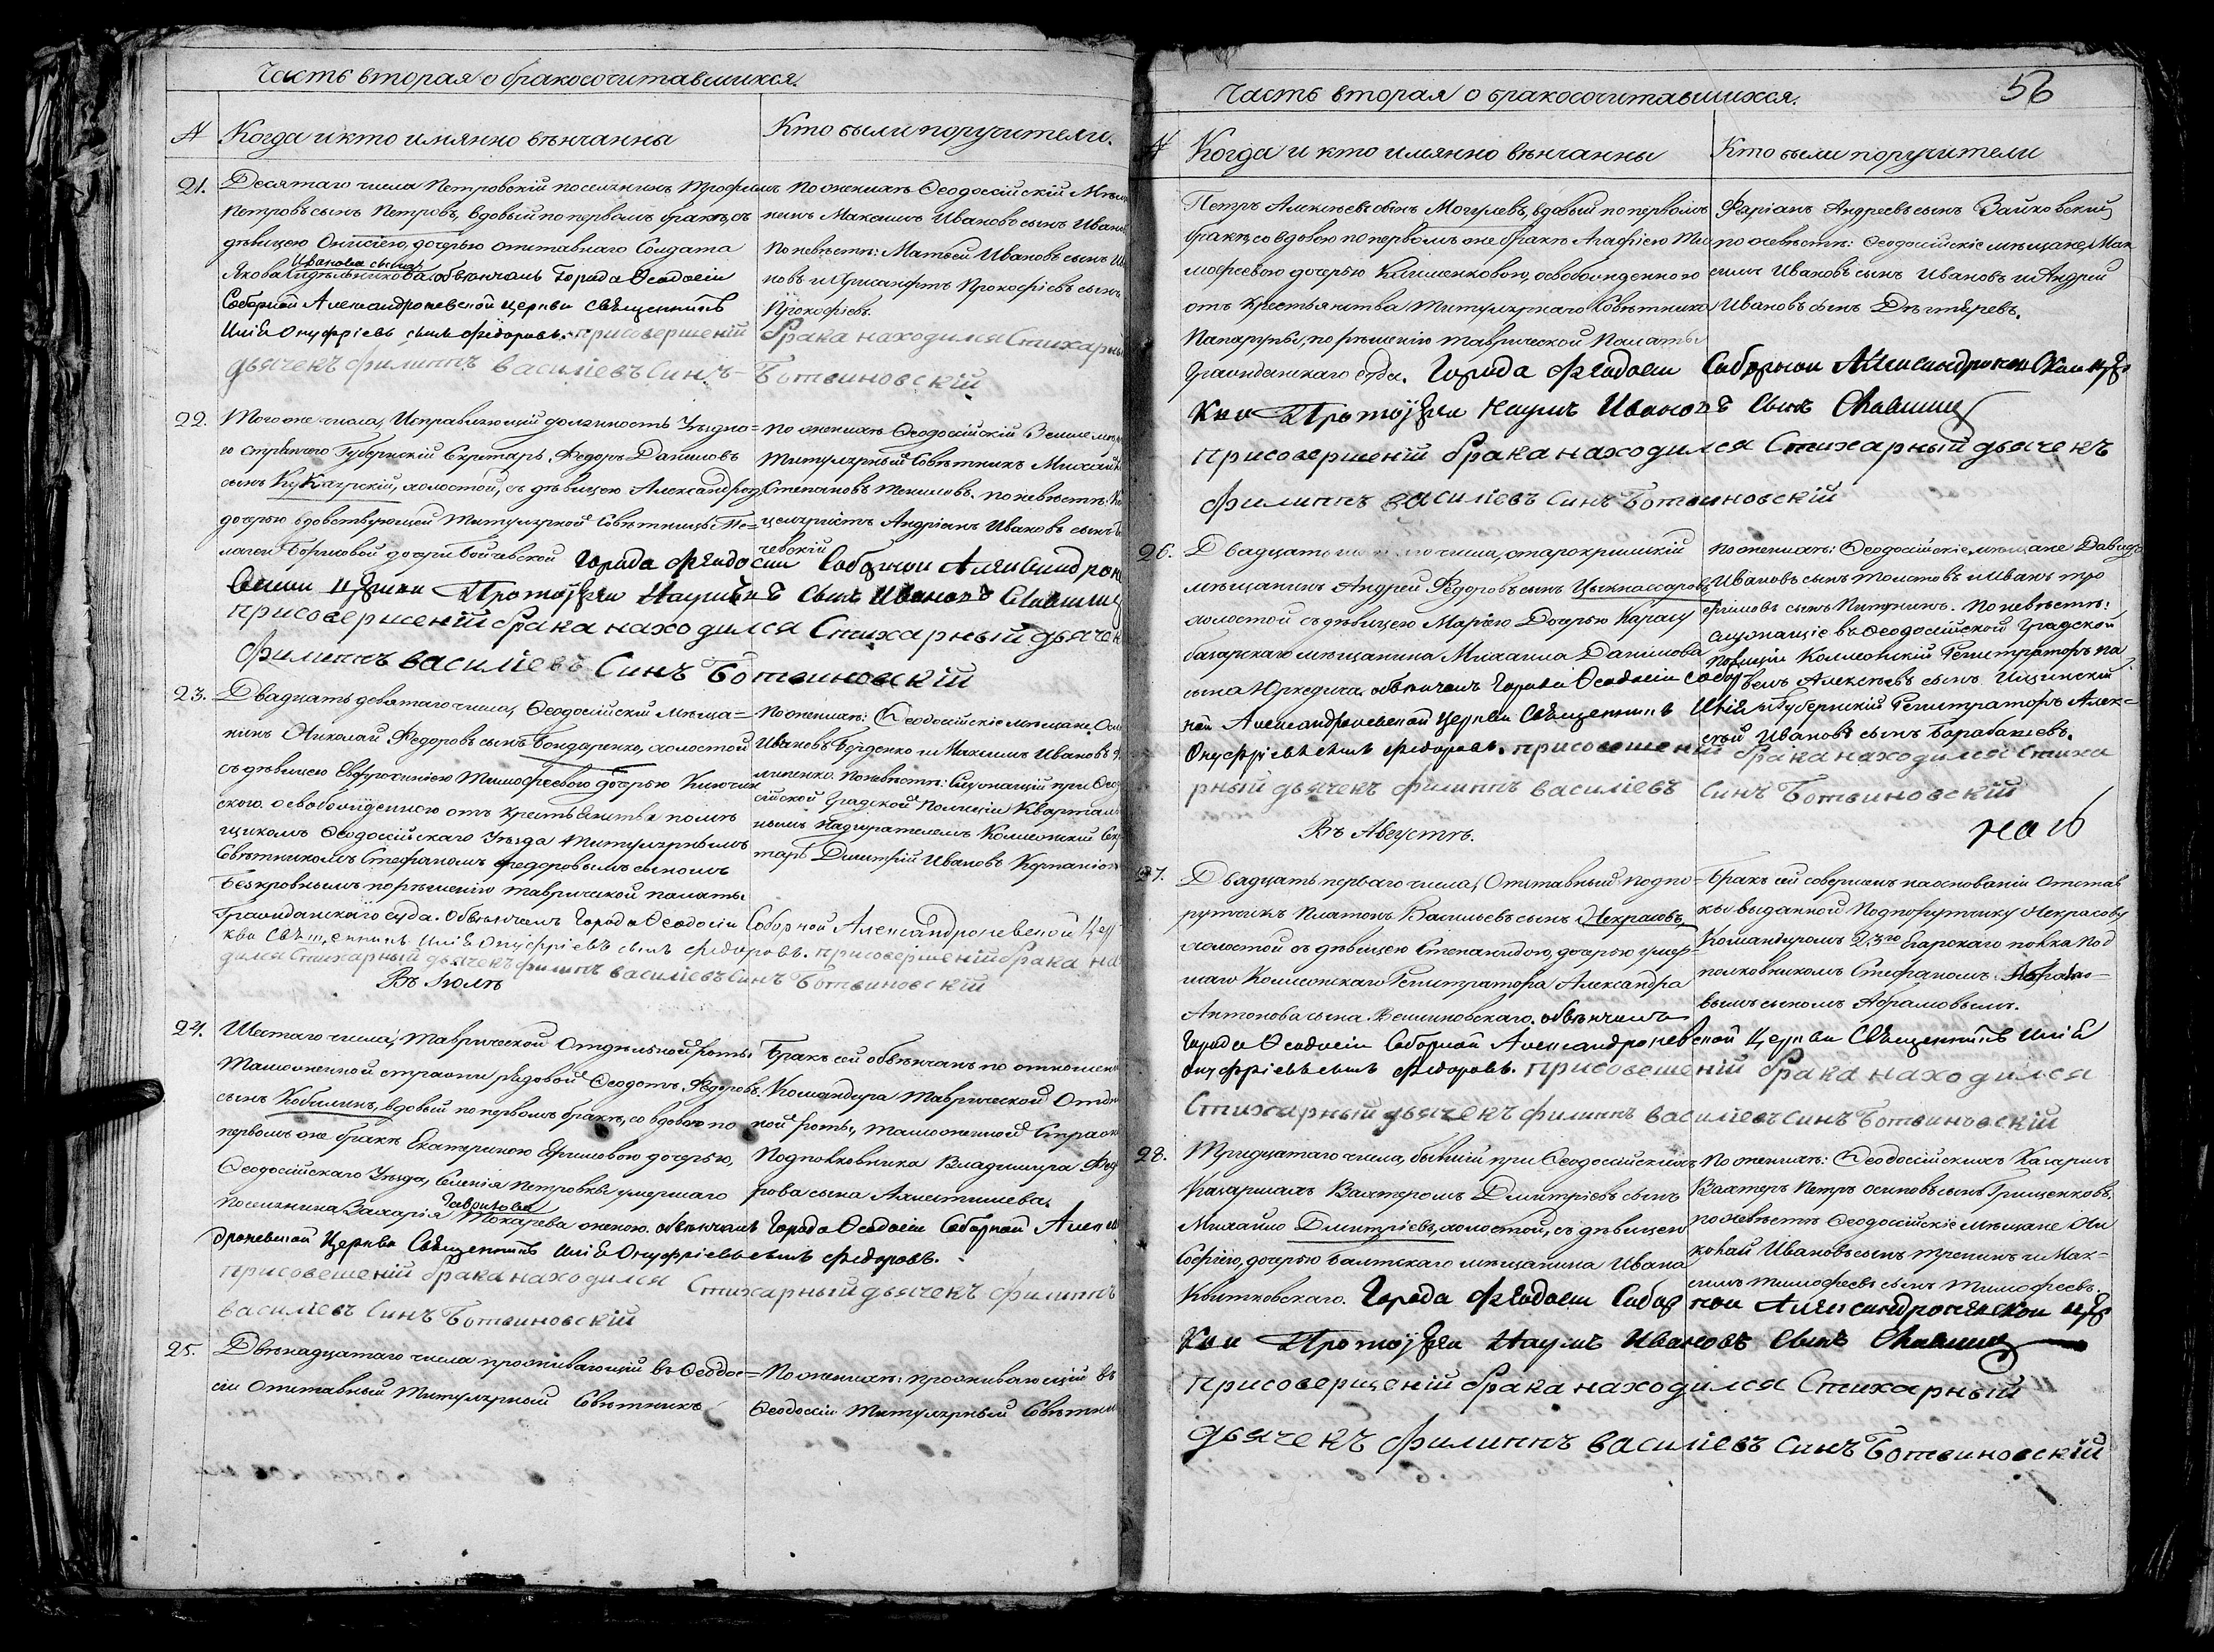 Часть вторая о бракосочитавшихся.
№ Когда и кто имянно вѣнчанны
Кто были поручители.
21. Десятаго числа Петровскій поселянинъ Трофимъ
Петровъ сынъ Петровъ, вдовый по первомъ бракѣ, съ
дѣвицею Онисіею, дочерью отставнаго Солдата
Иванова сына
Якова обвѣнчалъ Города Ѳеодосіи
Соборной Александроневской церкви священникъ
Илія Онуфріевъ сынъ Федоровъ. присовершеній брака находился Стихарны
дьячекъ филиппъ василіевъ Синъ Ботвиновскій
По женихѣ Ѳеодосійскій Мѣща
нинъ Максимъ Ивановъ сынъ Ивано
По невѣстѣ: Матвей Ивановъ сынъ Ив
новъ и Хрисанфъ Прокофіевъ сынъ
Прокофіевъ.
22. Того же числа, Исправляющій должность Уѣздно=
го стряпчего Губернскій Секретарь, Федоръ Даниловъ
сынъ холостой, съ дѣвицею Александрою
дочерью вдовствующей Титулярной Совѣтницы Пе=
лагеи Борисовой дочери Бойчевской Города Феодосии Соборнои Александроне
вскои церкви Протоіереи Наумъ Ивановъ сынъ
присовершеній брака находился Стихарный дьячек
Филиппъ василіевъ Синъ Ботвиновскій
По женихѣ Ѳеодосійскій Землемѣръ
Титулярный Совѣтникъ Михаилъ
Степановъ По невѣстѣ: Кан
целяристъ Андріанъ Ивановъ сынъ Бой
чевскій
23. Двадцать девятаго числа, Ѳеодосійскій Мѣща=
нинъ Николай Федоровъ сынъ Бондаренко, холостой
съ дѣвицею Евфросиніею Тимофеевою дочерью
скою освобожденною отъ крестьянства помѣ
щикомъ Ѳеодосійскаго Уѣзда Титулярнымъ
Совѣтникомъ Стефаномъ Федоровымъ сыномъ
Безкровнымъ по рѣшенію Таврической палаты
Гражданскаго суда. Обвѣнчалъ Города Ѳеодосіи Соборной Александроневской Цер
кви Священникъ Илія Онуфріевъ сынъ Федоровъ. присовершеній брака на
дился Стихарный дьячекъ филиппъ василіевъ Синъ Ботвиновскій
По женихѣ: Ѳеодосійскіе мѣщане, Оси
Ивановъ и Максимъ Ивановъ
По невѣстѣ: Служащій при Ѳеод
сійской Градской Полиціи Квартал
нымъ Надзирателемъ Колежскій Сек
тарь Димитрій Ивановъ
Въ Іюлѣ
24. Шестаго числа, Таврической Отдѣльной роты
Таможенной стражи рядовой Ѳеодотъ Федоровъ
сынъ Кобилинъ, вдовый по первомъ бракѣ, со вдовою по
первомъ же бракѣ Екатериною Ефимовою дочерью,
Ѳеодосійскаго Уѣзда, Селенія Петровки умершаго
Гаврилова
поселянина Захарія Токарева женою. обвѣнчалъ Города Ѳеодосіи Соборной Алекса
дроневской Церкви Священникъ Илія Онуфріевъ сынъ Федоровъ.
присовешеній брака находился Стихарный дьячекъ филиппъ
василіевъ Синъ Ботвиновскій
Бракъ сей обвѣнчанъ по отношен
Командира Таврической Отдѣ
ной роты, таможенной Страж
Подполковника Владимира Фед
рова сына Ахметишева.
25. Двѣнадцатаго числа проживающій въ Ѳеодо=
сіи отставный Титулярный Совѣтникъ
По женихѣ: проживающій въ
Ѳеодосіи Титулярный Совѣтни
56
Часть вторая о бракосочитавшихся.
№ Когда и кто имянно вѣнчанны
Кто были поручители
Петръ Алексѣевъ сынъ Могулевъ, вдовый по первомъ
бракѣ, со вдовою по первомъ же бракѣ Агафіею Ти
мофеевою дочерью Клименковою, освобожденною
отъ Крестьянства Титулярнаго Совѣтника
по рѣшенію таврической Палаты
Гражданскаго суда. Города Феодосіи Соборнои Александроневскои цер
кви Протоіереи Наумъ Ивановъ сынъ
присовершеній брака находился Стихарный дьячекъ
филиппъ василіевъ синъ Ботвиновскій
Андреевъ сынъ Зайковскій,
по невѣстѣ: Ѳеодосійскіе мѣщане, Мак
симъ Ивановъ сынъ Ивановъ и Андрей
Ивановъ сынъ Дегтяревъ.
26. Двадцать числа, старокримскій
мѣщанинъ Андрей Федоровъ сынъ
холостой съ дѣвицею Маріею дочерью Карасу
базарскаго мѣщанина Михаила Данилова
сына Юркевича. обвѣнчалъ Города Ѳеодосіи Собор
ной Александроневской Церкви Священникъ Илія
Онуфріевъ сынъ Федоровъ. присовешеній брака находился Стиха
рный дьячекъ филиппъ василіевъ Синъ Ботвиновскій
По женихѣ: Ѳеодосійскіе мѣщане Давидъ
Ивановъ сынъ Толстовъ и Иванъ Тро
фимовъ сынъ По невѣстѣ:
служащіе въ Ѳеодосійской Градской
Полиціи Колежскій Регистраторъ Па
велъ Алексѣевъ сынъ
и Губернскій Регистраторъ Алек=
сѣй Ивановъ сынъ Барабашевъ.
Въ Августѣ.
27. Двадцать перваго числа, Отставный подпо=
рутчикъ Платонъ Васильевъ сынъ Некрасовъ,
холостой съ дѣвицею Степанидою, дочерью умер=
шаго Колежскаго Регистратора Александра
Антонова сына Вешиновскаго. обвѣнчалъ
Города Ѳеодосіи Соборной Александроневской Церкви Священникъ Илія
Онуфріевъ сынъ Федоровъ. присовешеній брака находился
Стихарный дьячекъ филиппъ василіевъ Синъ Ботвиновскій
Бракъ сей совершенъ на основаніи отстав
ки выданной Подпорутчику Некрасову
Командиромъ 23го егарскаго полка Под
полковникомъ Стефаномъ
вымъ сыномъ Абрамовымъ.
28. Тридцатаго числа, бывшій при Ѳеодосійскихъ
Казармахъ Вахтеромъ Дмитріевъ сынъ
Михайло Дмитріевъ, холостой, съ дѣвицею
Софіею, дочерью Балтскаго мѣщанина Ивана
Квитковскаго. Города Феодосіи Соборнои Александроневскои цер
кви Протоіереи Наумъ Ивановъ сынъ
присоверщеній брака находился Стихарный
дьячекъ филиппъ василіевъ синъ Ботвиновскій
По женихѣ: Ѳеодосійскихъ Казармъ
Вахтеръ Петръ Осиповъ сынъ Грищенковъ,
по невѣстѣ Ѳеодосійскіе мѣщане Ни
колай Ивановъ сынъ и Мак=
симъ Тимофеевъ сынъ Тимофеевъ.